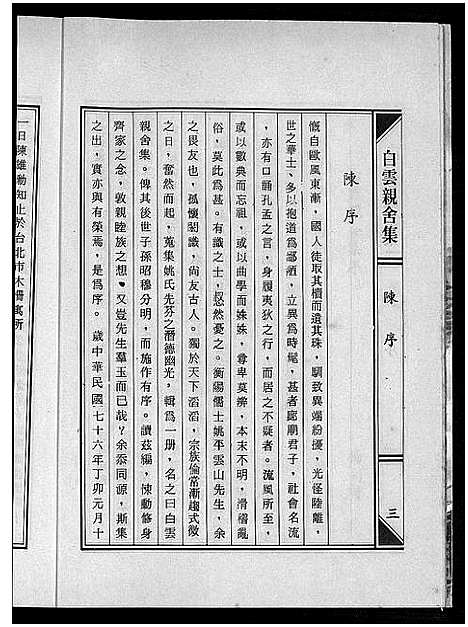 白雲親舍集
陳序
三
陳序
慨自歐風東漸，國人徒取其櫝而遺其珠，馴致異端紛擾，光怪陸離，
世之華士、多以抱道為鄙陋，立異為時髦，甚者廊廟君子，社會名流
，亦有口誦孔孟之言，身履夷狄之行，而居之不疑者。流風所至，
或以數典而忘祖，或以曲學而姝姝，尊卑莫辨，本末不明，滑稽亂
俗，莫此為甚。有識之士，怒然憂之。衡陽儒士姚平雲山先生，余
之畏友也，孤懷閎識，尚友古人。獨於天下滔滔，宗族倫常漸趨式微
之日，奮然而起，蒐集姚氏先芬之潛德幽光，輯為一册，名之曰白雲
親舍集。俾其後世子孫昭穆分明，而施作有序。讀茲編，悚動修身
齊家之念，敦親睦族之想。又豈先生羣玉而已哉？余忝同源，斯集
之出，實亦與有榮焉，是為序。歲中華民國七十六年丁卯元月十
一日陳雄勳知止於台北市木柵寓所